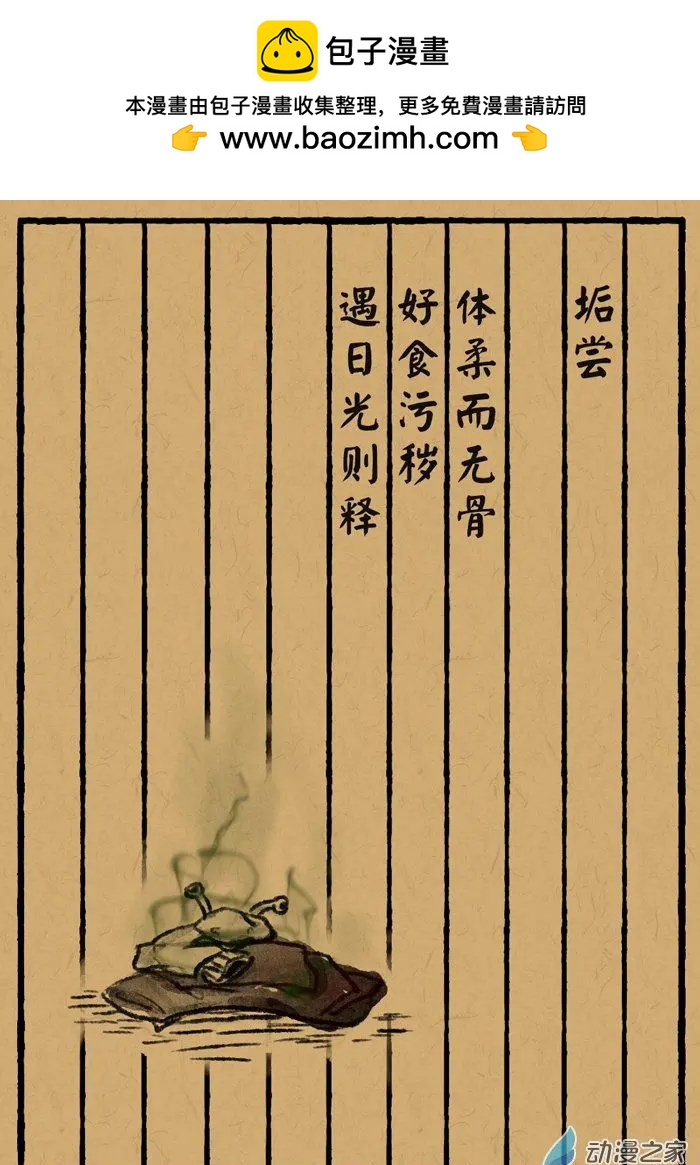 包子漫畫
本漫畫由包子漫畫收集整理，更多免費漫畫請訪問
www.baozimh.com
垢尝
体柔而无骨
好食污秽
遇日光则释
动漫之家